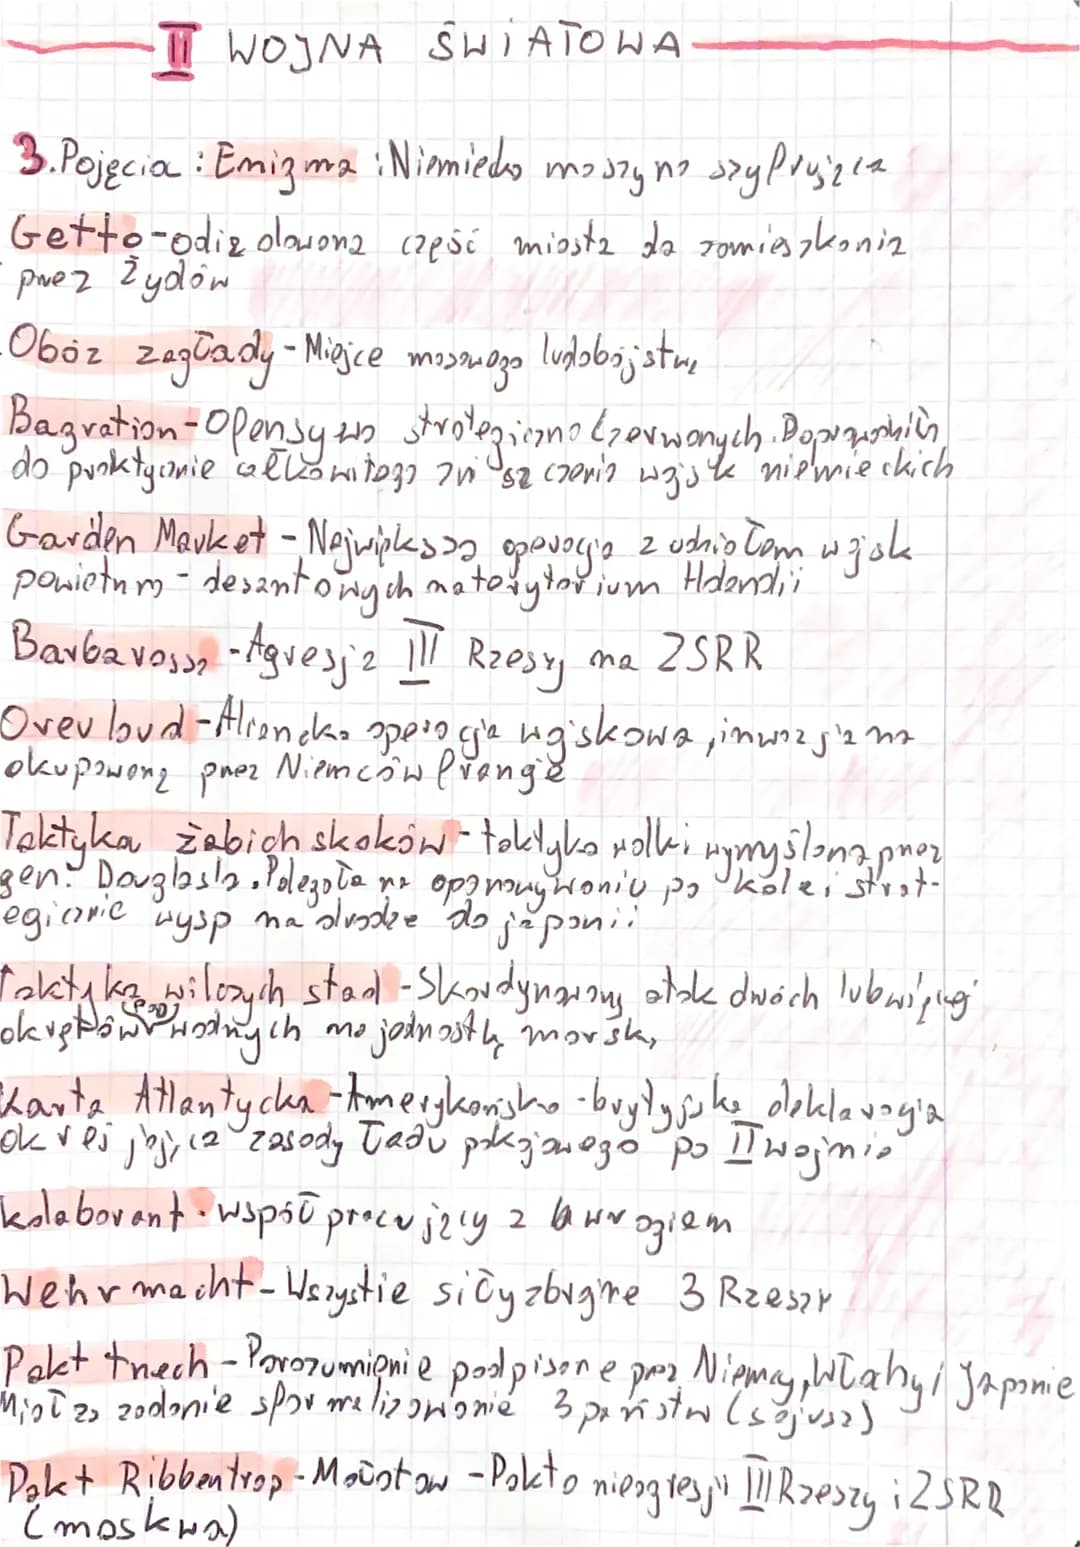 II WOJNA ŚWIATOWA
3. Pojęcia : Enigma : Niemiecka maszyna szyfrująca
Getto - odizolowana część miasta do zamieszkania
przez Żydów
Obóz zagłady - Miejce masowego ludobójstwa
Bagration - Ofensywa strategiczna Czerwonych. Doprowadził
do praktycznie całkowitego zniszczenia wojsk niemieckich
Garden Market - Największa operacja z udziałem wojsk
powietrzno - desantowych na terytorium Holandii
Barbarossa - Agresja III Rzeszy na ZSRR
Overlourd - Aliancka operacja wojskowa, inwazja na
okupowaną przez Niemców francję
Taktyka żabich skoków - taktyka walki wymyślona przez
gen. Douglasa. Polegała na opanowywaniu po kolei strat-
egicznie wysp na drodze do japonii
Taktyka wilczych stad - Skordynowany atak dwóch lub więcej
okrętów podwodnych na jednostkę morską
Karta Atlantycka - Amerykańsko - brytyjska deklaracja
określająca zasady ładu pokojowego po II wojnie
kolaborant - współpracujący z wrogiem
Wehrmacht - Wszystie siły zbrojne 3 Rzeszy
Pakt trzech - Porozumienie podpisane przez Niemcy, Włochy i Japonie
Miał za zadanie sformalizowanie 3 państw (sojusz)
Pakt Ribbentrop - Mołotow - Pakt o nieagresji III Rzeszy i ZSRR
(moskwa)